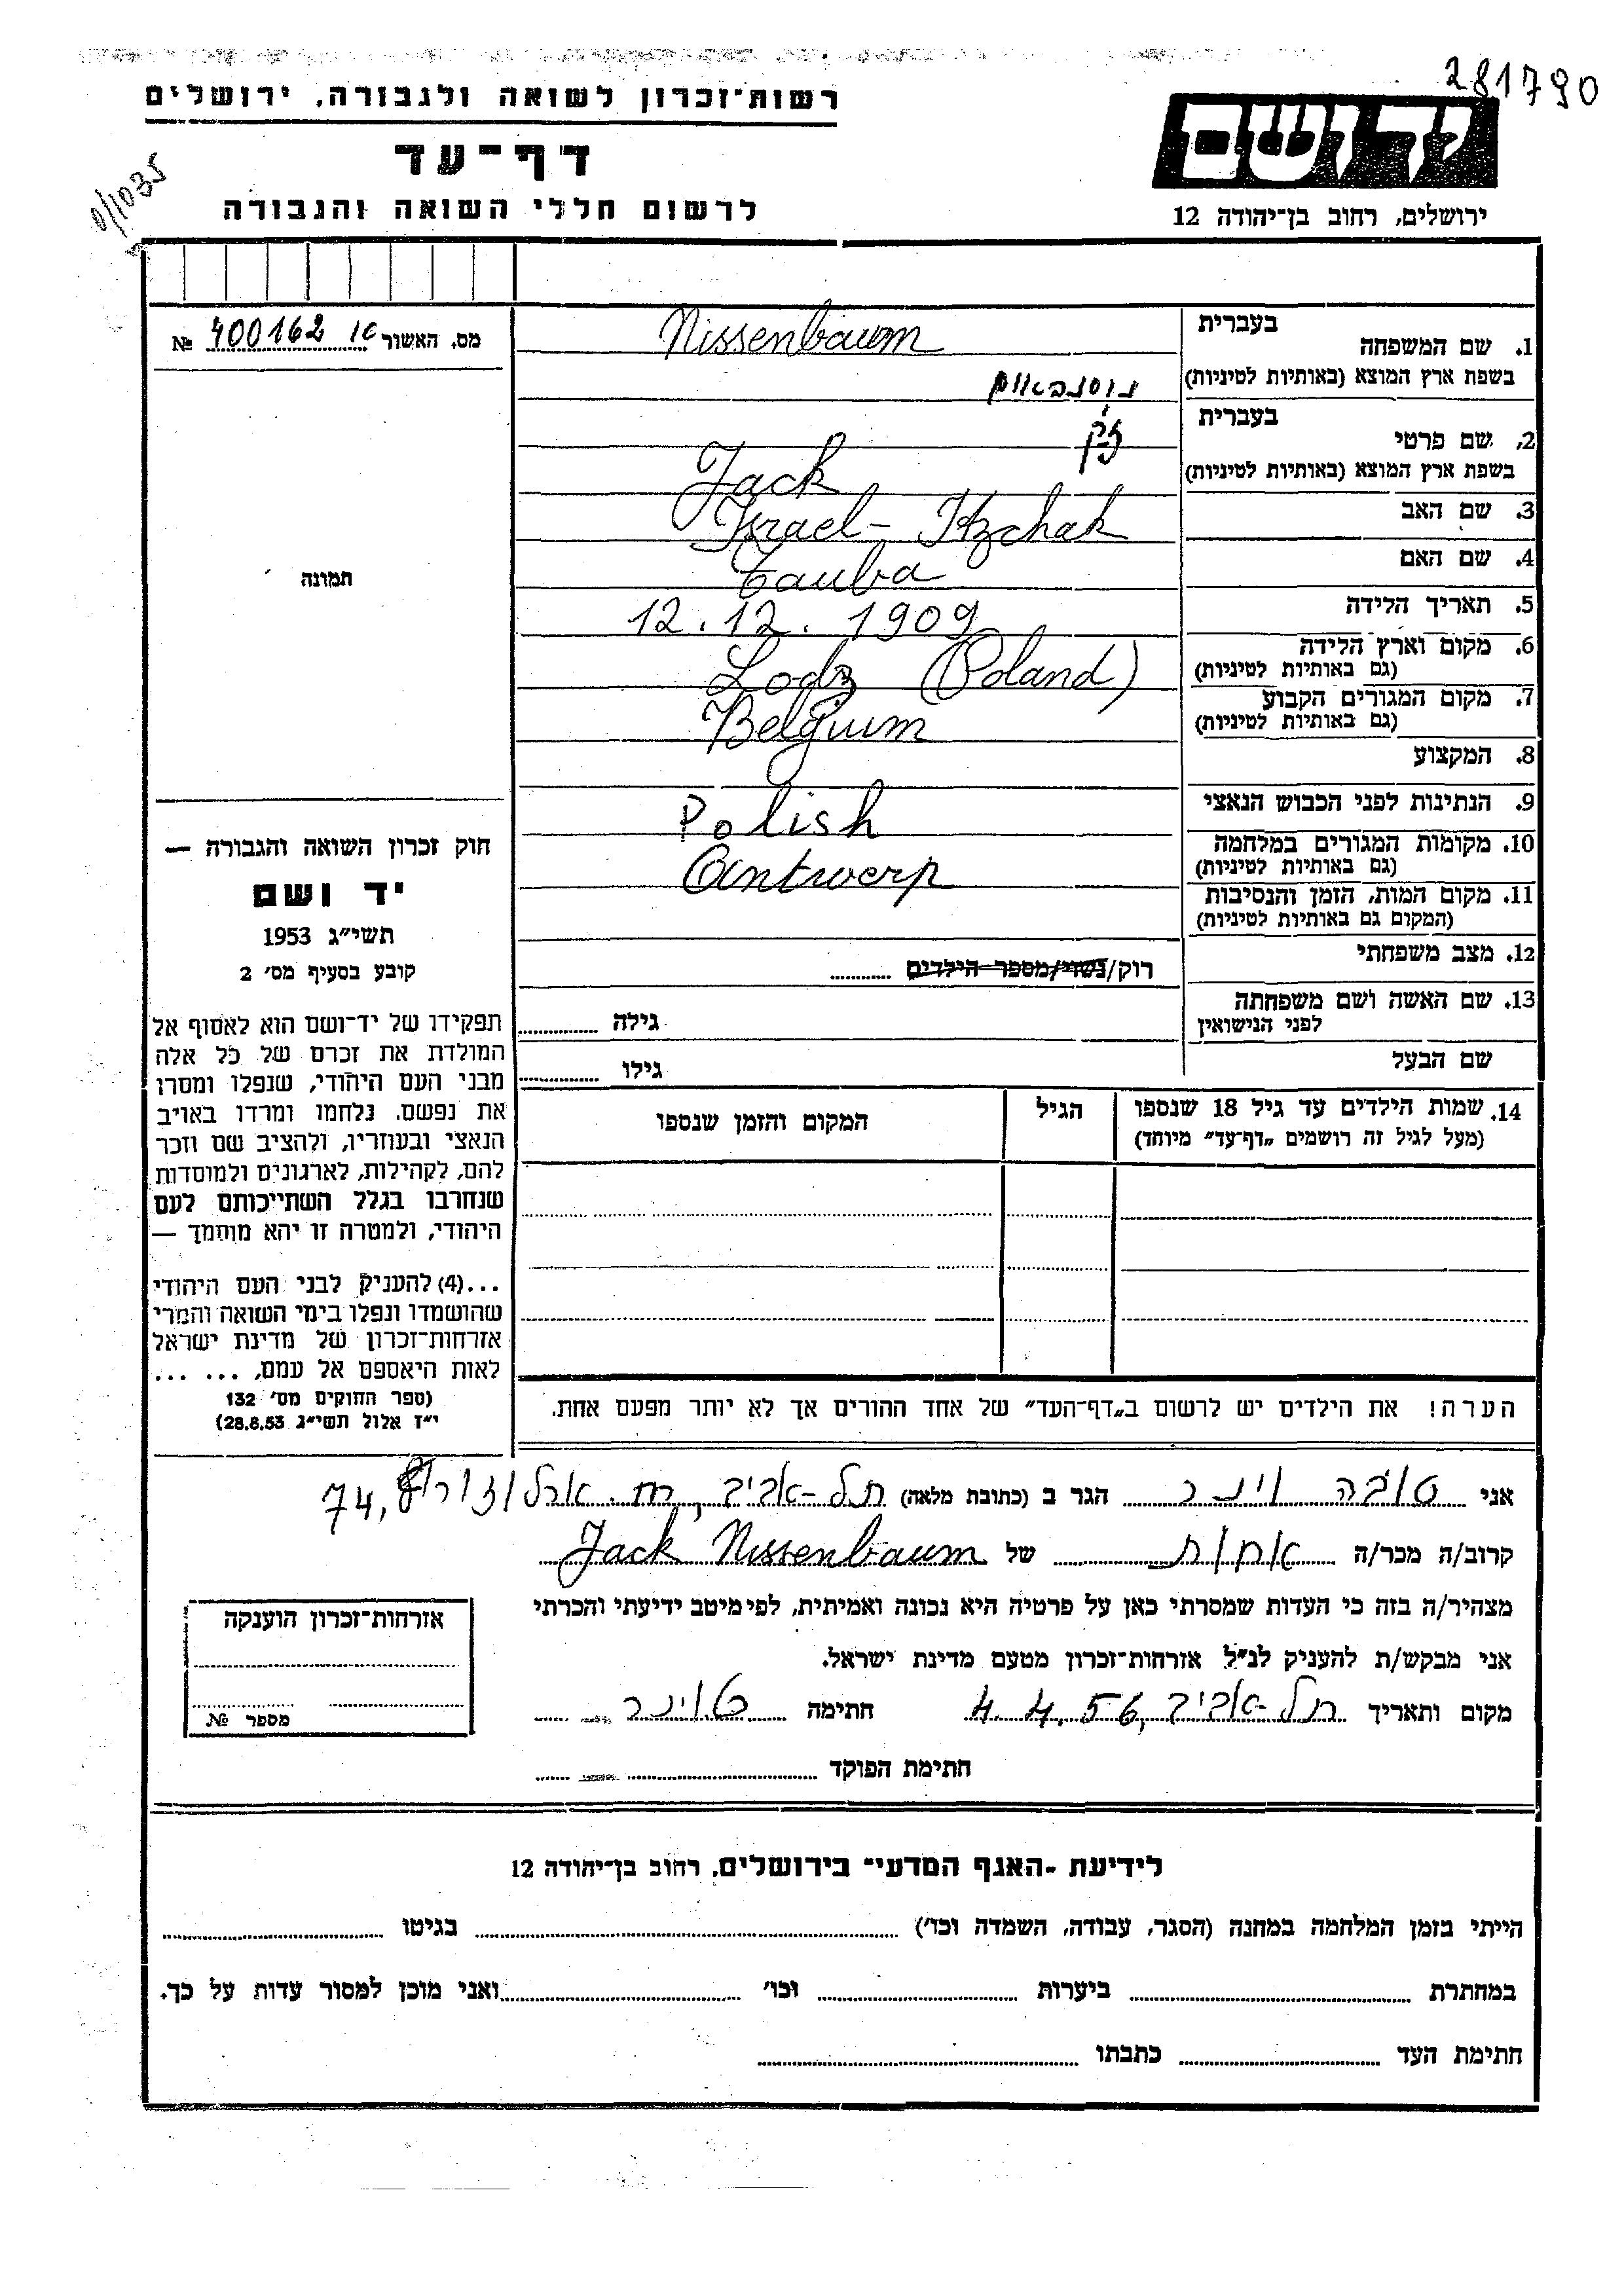 281790
רשות־זכרון לשואה ולגבורה, ירושלים
דף־עד
לרשום חללי השואה והגבורה
יד ושם
ירושלים, רחוב בן־יהודה 12
מס. האשור № 400162
בעברית
1. שם המשפחה Nissenbaum
בשפת ארץ המוצא (באותיות לטיניות) ניסנבאום
בעברית
2. שם פרטי ז'ק
בשפת ארץ המוצא (באותיות לטיניות) Jack
3. שם האב Israel - Itzchak
4. שם האם Tauba
5. תאריך הלידה 12.12.1909
6. מקום וארץ הלידה Lodz (Poland)
(גם באותיות לטיניות)
7. מקום המגורים הקבוע Belgium
(גם באותיות לטיניות)
8. המקצוע
9. הנתינות לפני הכבוש הנאצי Polish
10. מקומות המגורים במלחמה Antwerp
(גם באותיות לטיניות)
11. מקום המות, הזמן והנסיבות
(המקום גם באותיות לטיניות)
12. מצב משפחתי רווק/נשוי/מספר הילדים
13. שם האשה ושם משפחתה גילה
לפני הנישואין
שם הבעל גילו
תמונה
חוק זכרון השואה והגבורה —
יד ושם
תשי״ג 1953
קובע בסעיף מס׳ 2
תפקידו של יד־ושם הוא לאסוף אל
המולדת את זכרם של כל אלה
מבני העם היהודי, שנפלו ומסרו
את נפשם, נלחמו ומרדו באויב
הנאצי ובעוזריו, ולהציב שם וזכר
להם, לקהילות, לארגונים ולמוסדות
שנחרבו בגלל השתייכותם לעם
היהודי, ולמטרה זו יהא מוסמך —
...(4) להעניק לבני העם היהודי
שהושמדו ונפלו בימי השואה והמרי
אזרחות־זכרון של מדינת ישראל
לאות היאספם אל עמם, ... ...
(ספר החוקים מס׳ 132
י״ז אלול תשי״ג 28.8.53)
14. שמות הילדים עד גיל 18 שנספו הגיל המקום והזמן שנספו
(מעל לגיל זה רושמים „דף־עד״ מיוחד)
הערה! את הילדים יש לרשום ב„דף־העד״ של אחד ההורים אך לא יותר מפעם אחת.
אני טובה וינר הגר ב (כתובת מלאה) תל-אביב, רח. ארלוזורוב 74,
קרוב/ה מכר/ה אחות של Jack Nissenbaum
מצהיר/ה בזה כי העדות שמסרתי כאן על פרטיה היא נכונה ואמיתית, לפי מיטב ידיעתי והכרתי
אני מבקש/ת להעניק לנ״ל אזרחות־זכרון מטעם מדינת ישראל.
מקום ותאריך תל-אביב, 4.4.56 חתימה ט. וינר
חתימת הפוקד
אזרחות־זכרון הוענקה
מספר №
לידיעת „האגף המדעי״ בירושלים, רחוב בן־יהודה 12
הייתי בזמן המלחמה במחנה (הסגר, עבודה, השמדה וכו׳) בגיטו
במחתרת ביערות וכו׳ ואני מוכן למסור עדות על כך.
חתימת העד כתבתו